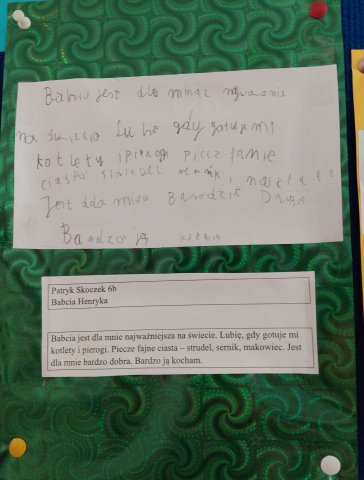 Babcia jest dla mnie
na świecie Lubie gdy gotuje mi
kotlety i pierogi Piecze fajne
Jest dla mnie
Bardzo ją
Patryk Skoczek 6b
Babcia Henryka
Babcia jest dla mnie najważniejsza na świecie. Lubię, gdy gotuje mi
kotlety i pierogi. Piecze fajne ciasta – strudel, sernik, makowiec. Jest
dla mnie bardzo dobra. Bardzo ją kocham.